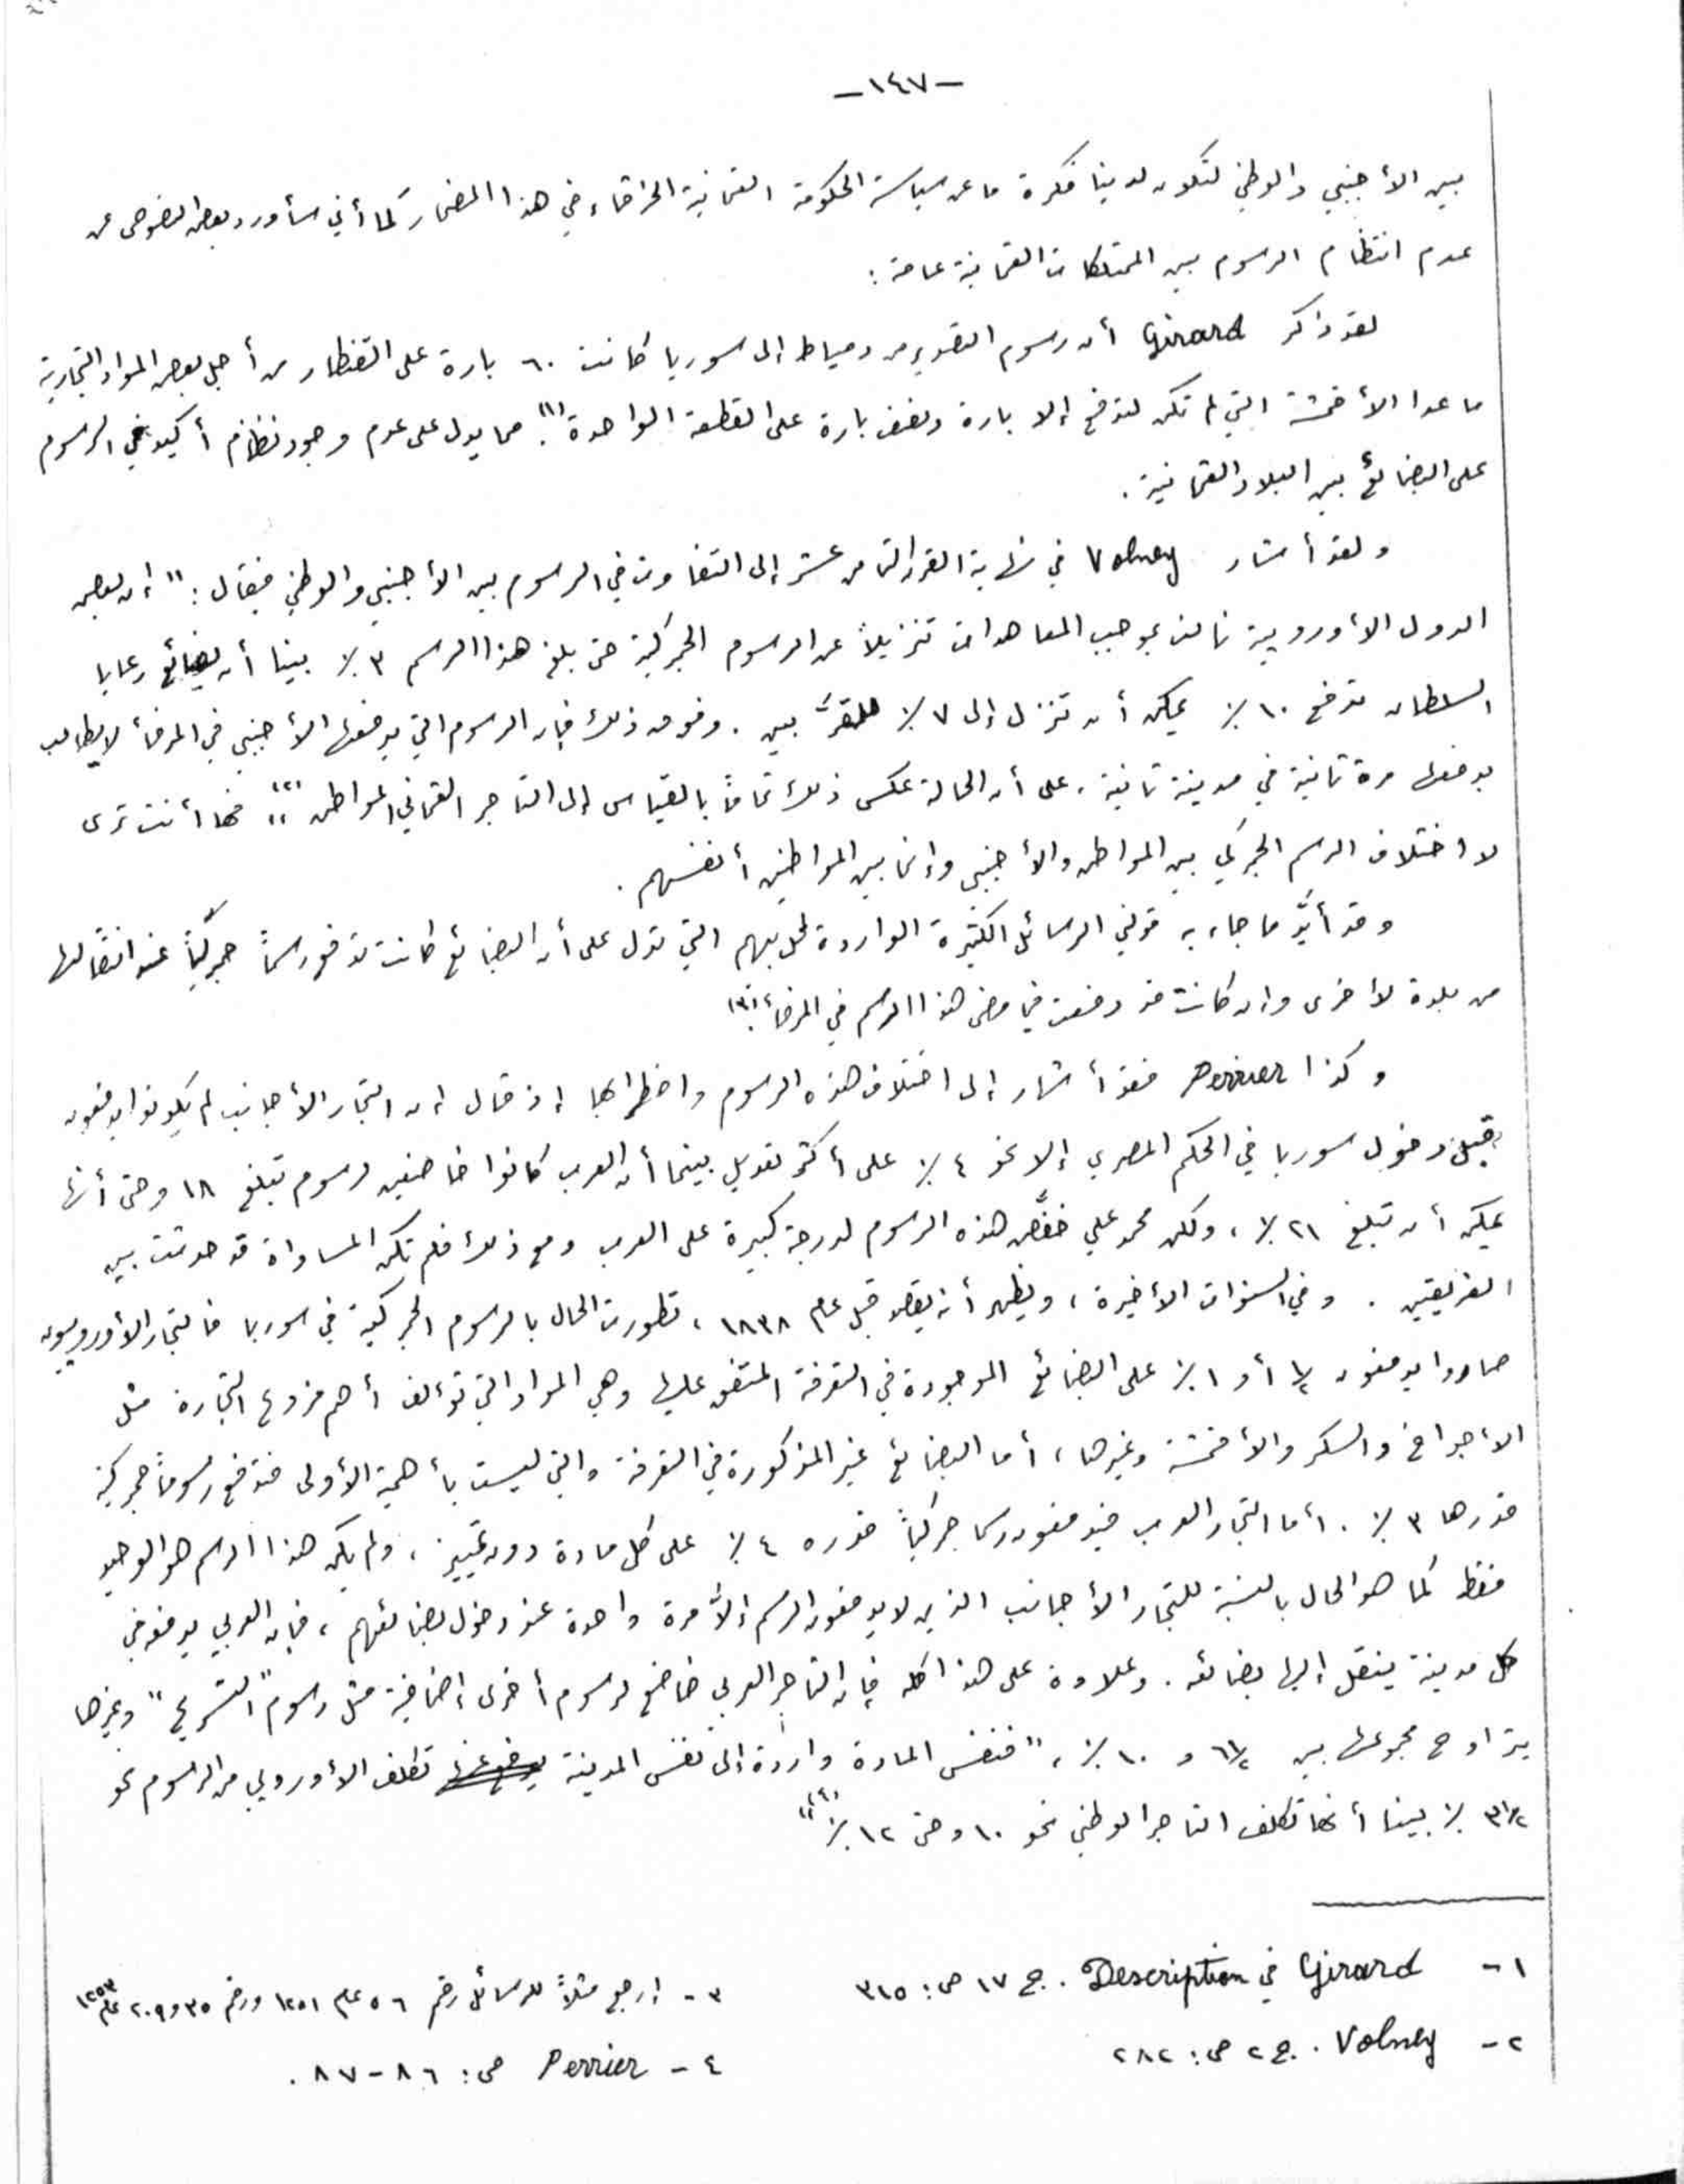 -١٤٧-
بين الأجنبي والوطني لتكون لدينا فكرة ما عن سياسة الحكومة العثمانية الخرقاء في هذا المضمار كما أني سأورد بعض النصوص عن
عدم انتظام الرسوم بين الممتلكات العثمانية عامة :
لقد ذكر Girard أن رسوم التصدير من دمياط إلى سوريا كانت ٦٠ بارة على القنطار من أجل بعض المواد التجارية
ما عدا الأقمشة التي لم تكن لتدفع إلا بارة ونصف بارة على القطعة الواحدة (١). مما يدل على عدم وجود نظام أكيد في الرسوم
على البضائع بين البلاد العثمانية .
ولقد أشار Volney في نهاية القرن الثامن عشر إلى التفاوت في الرسوم بين الأجنبي والوطني فيقال : " إن بعض
الدول الأوروبية نالت بموجب المعاهدات تنزيلاً عن الرسوم الجمركية حتى بلغ هذا الرسم ٣ ٪ بينا أن بضائع رعايا
السلطان تدفع ١٠ ٪ يمكن أن تنزل إلى ٧ ٪ للمقرَّبين . وفوق ذلك فإن الرسوم التي يدفعها الأجنبي في المرفأ لا يطالب
بدفعها مرة ثانية في مدينة ثانية . على أن الحالة عكس ذلك تماماً بالقياس إلى التاجر العثماني المواطن " (٢) فها أنت ترى
لا اختلاف الرسم الجمركي بين المواطن والأجنبي وإنما بين المواطنين أنفسهم .
وقد أيَّد ما جاء به فولني الرسائل الكثيرة الواردة لحل بينهم التي تدل على أن البضائع كانت تدفع رسماً جمركياً عند انتقالها
من بلدة لأخرى وإن كانت قد دفعت فيما مضى هذا الرسم في المرفأ (٣).
وكذا Perrier فقد أشار إلى اختلاف هذه الرسوم واضطرابها إذ قال إن التجار الأجانب لم يكونوا يدفعون
قبل دخول سوريا في الحكم المصري إلا نحو ٤ ٪ على أكثر تعديل بينما أن العرب كانوا خاضعين لرسوم تبلغ ١٨ وحتى أنها
يمكن أن تبلغ ٢١ ٪ ، ولكن محمد علي خفَّض هذه الرسوم لدرجة كبيرة على العرب ومع ذلك فلم تكن المساواة قد حدثت بين
الفريقين . وفي السنوات الأخيرة ، ويظهر أنه يقصد قبل عام ١٨٣٨ ، تطورت الحال بالرسوم الجمركية في سوريا فالتجار الأوروبيون
صاروا يدفعون ١/٢ أو ١ ٪ على البضائع الموجودة في التعرفة المتفق عليها وهي المواد التي تؤلف أهم فروع التجارة مثل
الأجواخ والسكر والأقمشة وغيرها ، أما البضائع غير المذكورة في التعرفة والتي ليست بأهمية الأولى فتدفع رسوماً جمركية
قدرها ٣ ٪ . أما التجار العرب فيدفعون رسما جمركياً قدره ٤ ٪ على كل مادة دون تمييز ، ولم يكن هذا الرسم هو الوحيد
فقط كما هو الحال بالنسبة للتجار الأجانب الذين لا يدفعون الرسم إلاَّ مرة واحدة عند دخول بضائعهم ، فإن العربي يدفع في
كل مدينة ينقل إليها بضائعه . وعلاوة على هذا كله فإن التاجر العربي خاضع لرسوم أخرى إضافية مثل رسوم " التسريح " وغيرها
يتراوح مجموعها بين ٦١/٢ و ١٠ ٪ ، " فنفس المادة واردة إلى نفس المدينة تكلف الأوروبي من الرسوم نحو
٣١/٢ ٪ بينا أنها تكلف التاجر الوطني نحو ١٠ وحتى ١٢ ٪ " (٤)
١- Girard في Description . ج ١٧ ص : ٣١٥
٢- Volney . ج ٢ ص : ٢٨٢
٣- إرجع مثلاً للرسائل رقم ٥٦ عام ١٢٥١ ورقم ٣٥ و ٢٠٩ عام ١٢٥٣
٤- Perrier ص : ٨٦ - ٨٧ .